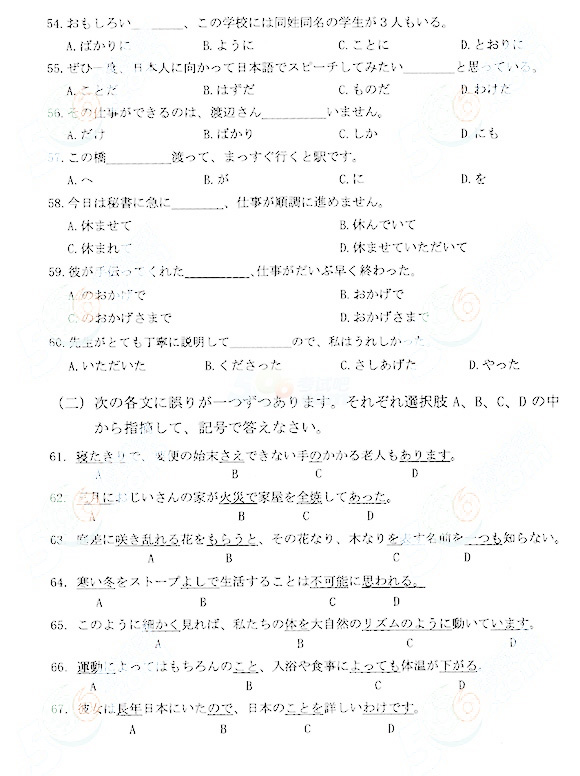 54. おもしろい________、この学校には同姓同名の学生が３人もいる。
A.ばかりに B.ように C.ことに D.とおりに
55. ぜひ一度、日本人に向かって日本語でスピーチしてみたい________と思っている。
A.ことだ B.はずだ C.ものだ D.わけた
56. その仕事ができるのは、渡辺さん__________いません。
A.だけ B.ばかり C.しか D.にも
57. この橋__________渡って、まっすぐ行くと駅です。
A.へ B.が C.に D.を
58. 今日は秘書に急に________、仕事が順調に進めません。
A.休ませて B.休んでいて
C.休まれて D.休ませていただいて
59. 彼が手伝ってくれた__________、仕事がだいぶ早く終わった。
A.のおかげで B.おかげで
C.のおかげさまで D.おかげさまで
60. 先生がとても丁寧に説明して__________ので、私はうれしかった
A.いただいた B.くださった C.さしあげた D.やった
（二）次の各文に誤りが一つずつあります。それぞれ選択肢 A、B、C、D の中
から指摘して、記号で答えなさい。
61. 寝たきりで、便の始末さえできない手のかかる老人もあります。
A B C D
62. 三月におじいさんの家が火災で家屋を全焼してあった。
A B C D
63. に咲き乱れる花をもらうと、その花なり、木なりを す名前を一つも知らない。
A B C D
64. 寒い冬をストーブよしで生活することは不可能に思われる。
A B C D
65. このように細かく見れば、私たちの体を大自然のリズムのように動いています。
A B C D
66. 運動によってはもちろんのこと、入浴や食事によっても体温が下がる.
A B C D
67. 彼女は長年日本にいたので、日本のことを詳しいわけです。
A B C D